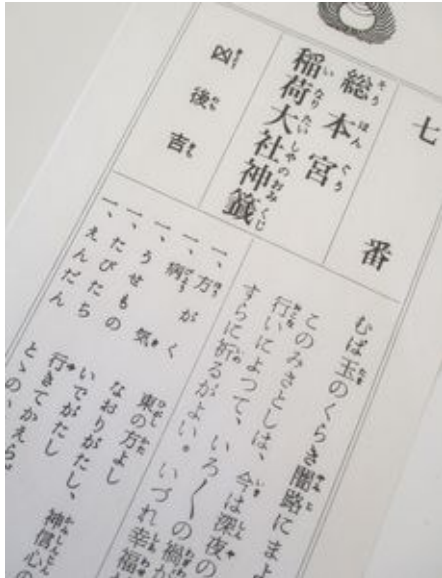 七番
総本宮
稲荷大社神籤
凶後吉
むば玉のくらき闇路にまよ
このみさとしは、今は深夜の
行いによって、いろ〳〵の禍が
すらに祈るがよい。いづれ幸福
一、方がく 東の方よし
一、病気 なおりがたし、神信心の
一、うせもの いでがたし
一、たびたち 行きてかえら
一、えんだん とゝの、